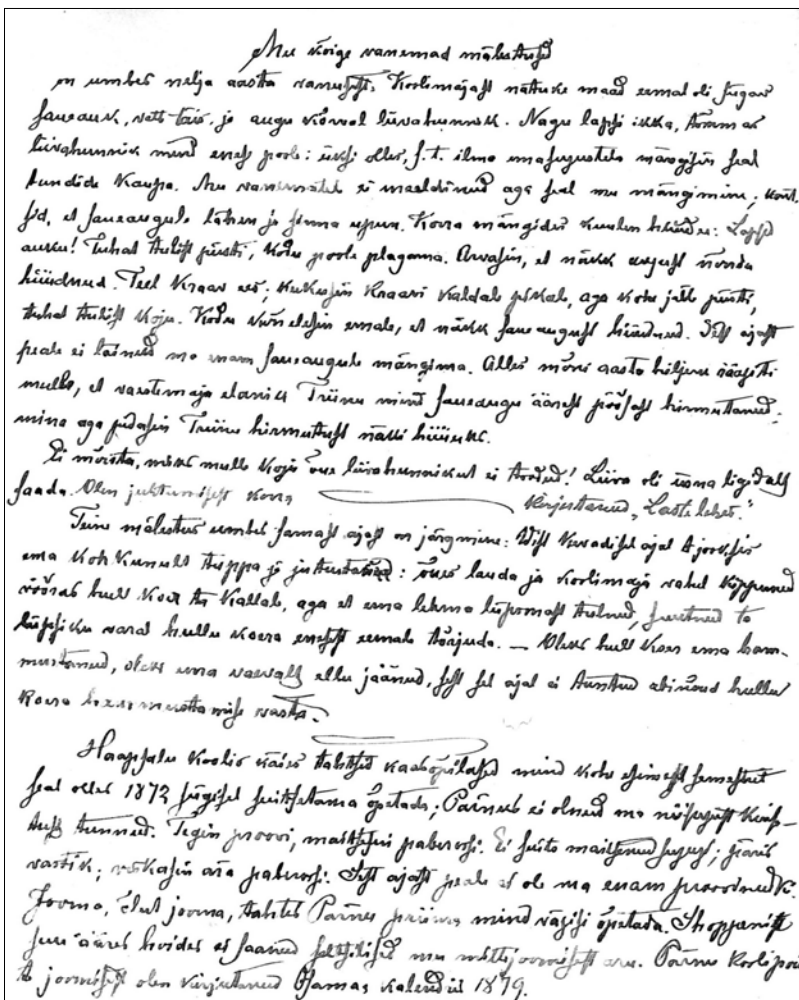 Mu kõige vanemad mälestused
on umbes nelja aasta vanuselt. Koolimajast natuke maad eemal oli sügav
saueauk, vett täis, ja augu kõrval liivahunnik. Nagu lapsi ikka, tõmmas
liivahunnik mind enese poole: üksi olles, s.t. ilma omasugusteta mängisin seal
tundide kaupa. Mu vanematele ei meeldinud aga seal mu mängimine, kart-
sid, et saueaugule lähen ja sinna upun. Korra mängides kuulen hüüdu: Lapsed
auku! Tuhat tulist jüsti, kodu poole plagama. Arvasin, et näkk august nõnda
hüüdnud. Teel kraav ees; kukusin kraavi kaldale pikali, aga kohe jälle püsti,
tuhat tulist koju. Kodu võõrelesin emale, et näkk saueaugust hüüdnud. Sest ajast
peale ei läinud ma enam saueaugule mängima. Alles mõni aasta hiljem räägiti
mulle, et vaestemaja elanik Triinu mind saueaugu äärest põõsast hirmutanud;
mina aga pidasin Triinu hirmutust näki hüüuks.
Ei mõista, miks mulle koju õue liivahunnikut ei toodud! Liiva oli üsna ligidalt
saada. Olen juhtumisest korra kirjutanud „Lastelehes."
Teine mälestus umbes samast ajast on järgmine: Vist kevadisel ajal tjooksis
ema kohkunult tuppa ja jutustanud: õues lauda ja koolimaja vahel kippunud
võõras hull koer ta kallale, aga et ema lehma lüpsmast tulnud, suutnud ta
lüpsiku varal hullu koera enesest eemale tõrjuda. — Oleks hull koer ema ham-
mustanud, oleks ema vaevalt ellu jäänud, sest sel ajal ei tuntud abinõud hullu
koera hammustamise vasta.
Haapsalu koolis käies tahtsid kaasõpilased mind kohe esimesest semestrit
seal olles 1872 sügisel suitsetama õpetada; Pärnus ei olnud ma niisugust kius-
tust tunnud. Tegin proovi, maitsesin paberossi. Ei suits maitsenud sugugi; päris
vastik; viskasin ära paberossi. Sest ajast peale ei ole ma enam proovinudki.
Jooma, õlut jooma, tahtis Pärnus mind vägisi õpetada.
suu ääres hoides ei saanud seltsilised mu mittejoomisest aru. Pärnu koolipoi
te joomisest olen kirjutanud Osamas kalendris 1879.